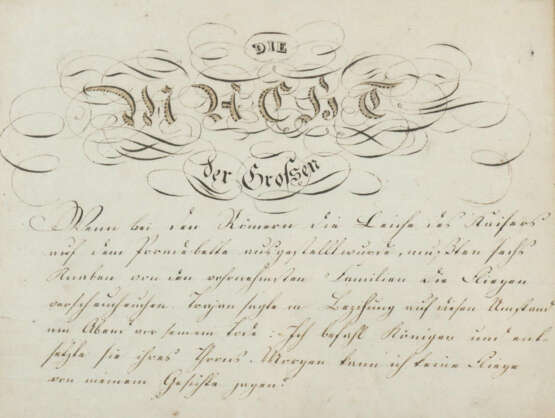 DIE
MACHT
der Großen
Wenn bei den Römern die Leiche des Kaisers
auf dem Paradebette ausgestellt wurde, mußten sechs
Knaben von den vornehmsten Familien die Fliegen
verscheuchen. Trajan sagte in Beziehung auf diesen Umstand
am Abend vor seinem Tode: Ich befahl Königen und ent-
setzte sie ihres Throns. Morgen kann ich keine Fliege
von meinem Gesichte jagen!